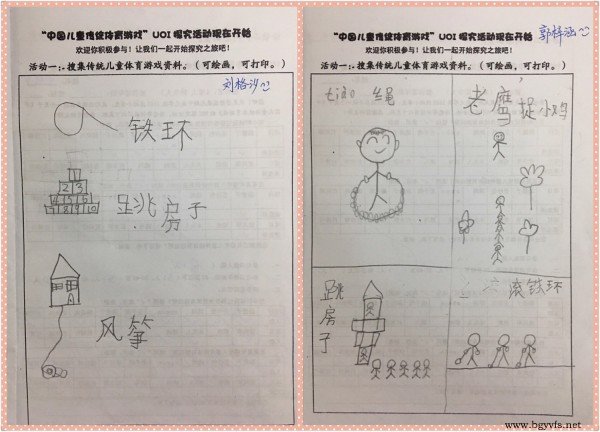 “中国儿童传统体育游戏”UOI 探究活动现在开始
欢迎你积极参与！让我们一起开始探究之旅吧！
活动一：.搜集传统儿童体育游戏资料。（可绘画，可打印。）
铁环
2 3
4 5 6
7 8 9 10
跳房子
风筝
“中国儿童传统体育游戏”UOI 探究活动现在开始
郭梓涵
欢迎你积极参与！让我们一起开始探究之旅吧！
活动一：.搜集传统儿童体育游戏资料。（可绘画，可打印。）
tiào 绳
老鹰捉小鸡
跳房子
滚铁环
www.bgyvfs.net